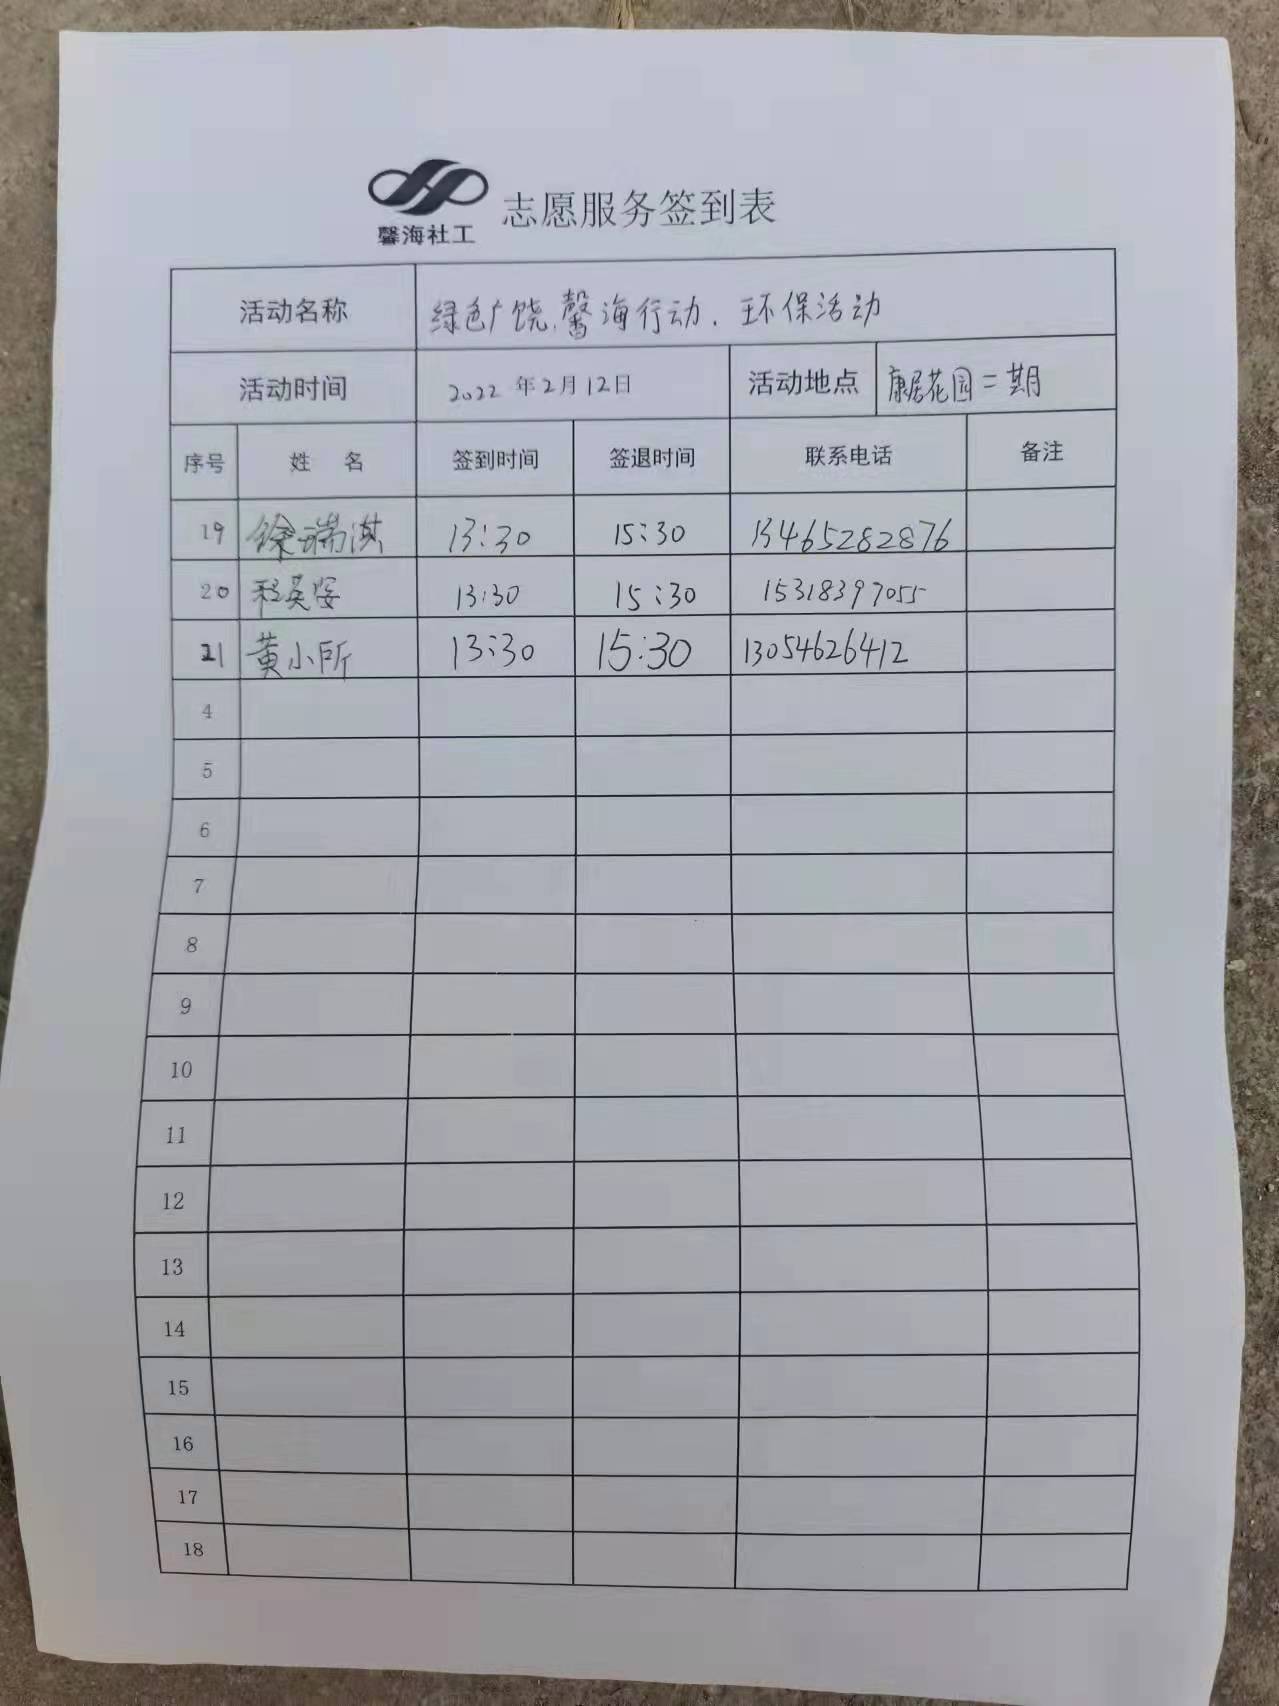 馨海社工 志愿服务签到表
活动名称 绿色广饶,馨海行动.环保活动
活动时间 2022年2月12日 活动地点 康居花园二期
序号 姓名 签到时间 签退时间 联系电话 备注
19 徐瑞淇 13:30 15:30 13465282876
20 程英姿 13:30 15:30 15318397055
21 黄小所 13:30 15:30 13054626412
4
5
6
7
8
9
10
11
12
13
14
15
16
17
18